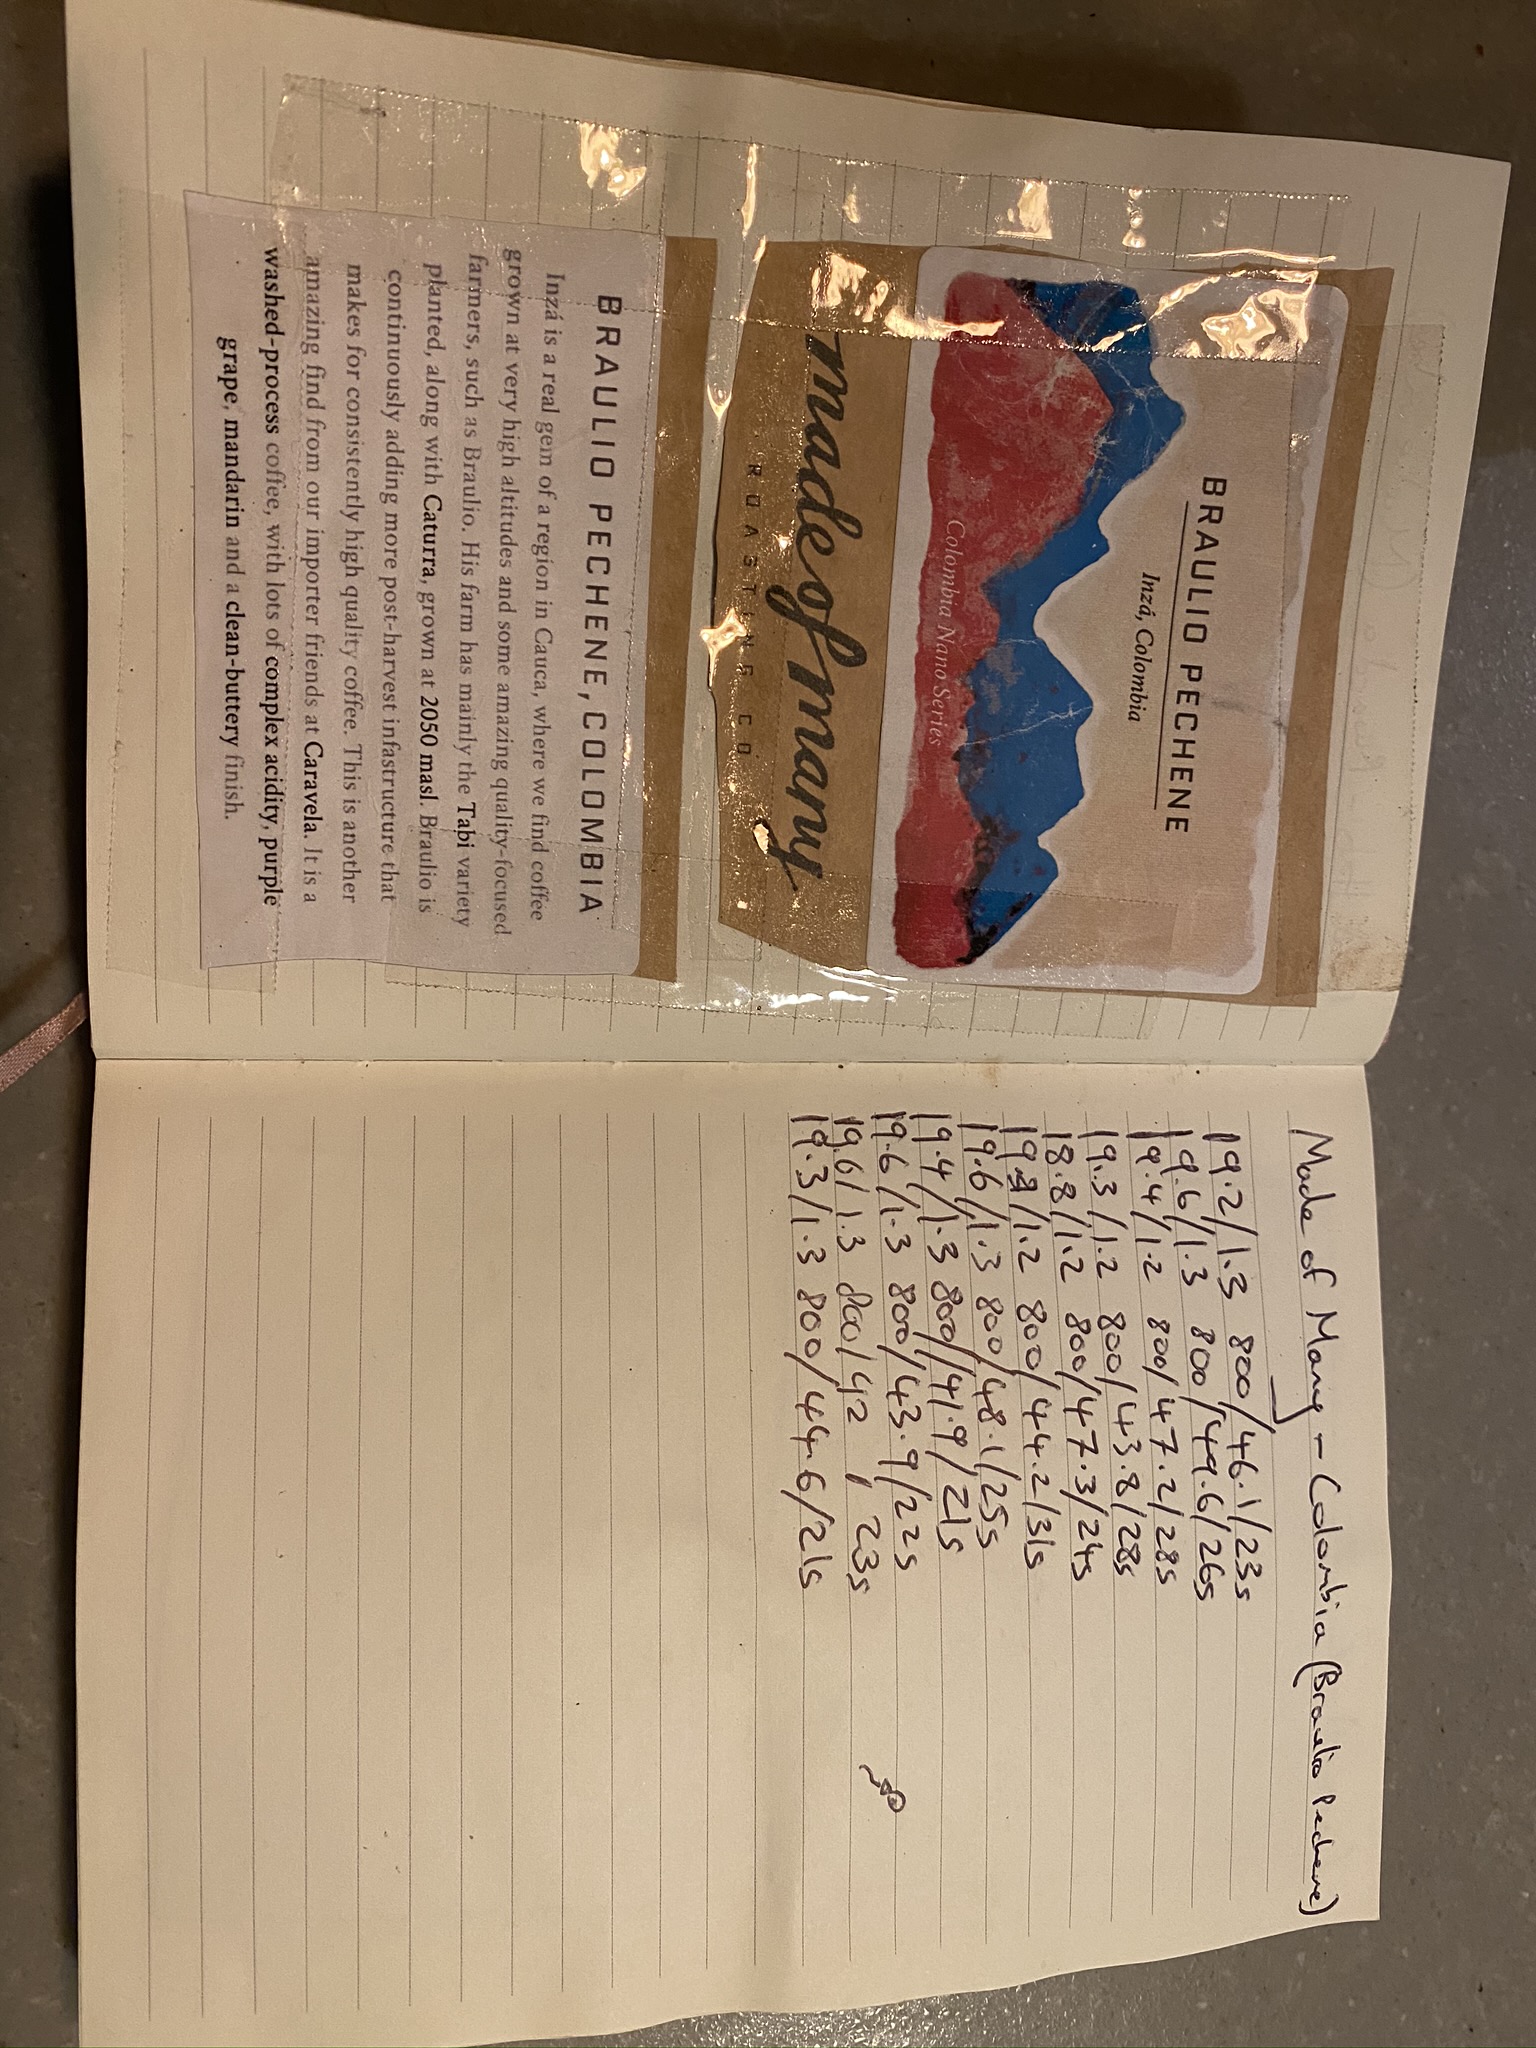 BRAULIO PECHENE
Inzá, Colombia
Colombia Nano Series
made of many
ROASTING CO
BRAULIO PECHENE, COLOMBIA
Inzá is a real gem of a region in Cauca, where we find coffee
grown at very high altitudes and some amazing quality-focused
farmers, such as Braulio. His farm has mainly the Tabi variety
planted, along with Caturra, grown at 2050 masl. Braulio is
continuously adding more post-harvest infastructure that
makes for consistently high quality coffee. This is another
amazing find from our importer friends at Caravela. It is a
washed-process coffee, with lots of complex acidity, purple
grape, mandarin and a clean-buttery finish.
Made of Many - Colombia (Braulio Pechene)
19.2/1.3 800/46.1/23s
19.6/1.3 800/49.6/26s
19.4/1.2 800/47.2/28s
19.3/1.2 800/43.8/28s
18.8/1.2 800/47.3/24s
1.2 800/44.2/31s
19.6/1.3 800/48.1/25s
19.4/1.3 800/41.9/21s
19.6/1.3 800/43.9/22s
19.6/1.3 800/42, 23s
19.3/1.3 800/44.6/21s